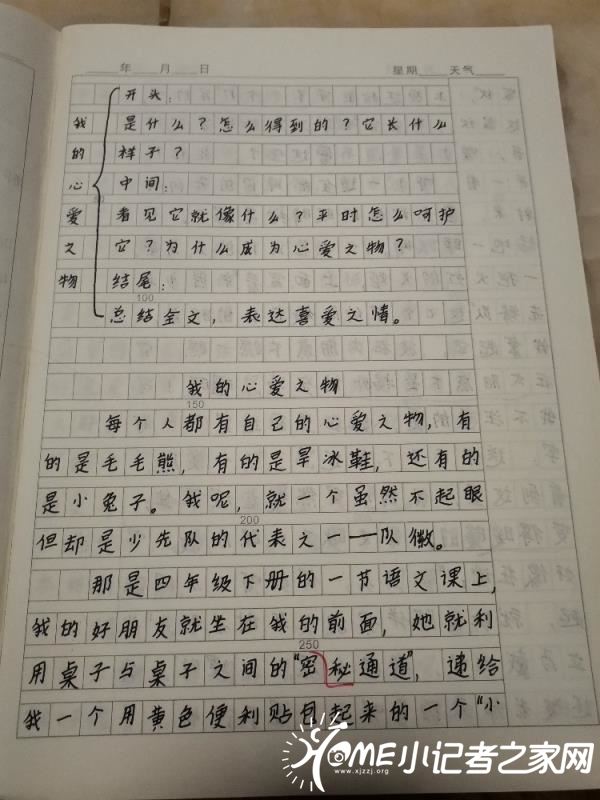 年 月 日 星期 天气
我的心爱之物
开头：
是什么？怎么得到的？它长什么
样子？
中间：
看见它就像什么？平时怎么呵护
它？为什么成为心爱之物？
结尾：
100
总结全文，表达喜爱之情。
我的心爱之物
150
每个人都有自己的心爱之物，有
的是毛毛熊，有的是旱冰鞋，还有的
是小兔子。我呢，就一个虽然不起眼
200
但却是少先队的代表之一——队徽。
那是四年级下册的一节语文课上，
我的好朋友就坐在我的前面，她就利
250
用桌子与桌子之间的“密秘通道”，递给
我一个用黄色便利贴包起来的一个“小
HOME小记者之家网
www.xjzzj.org